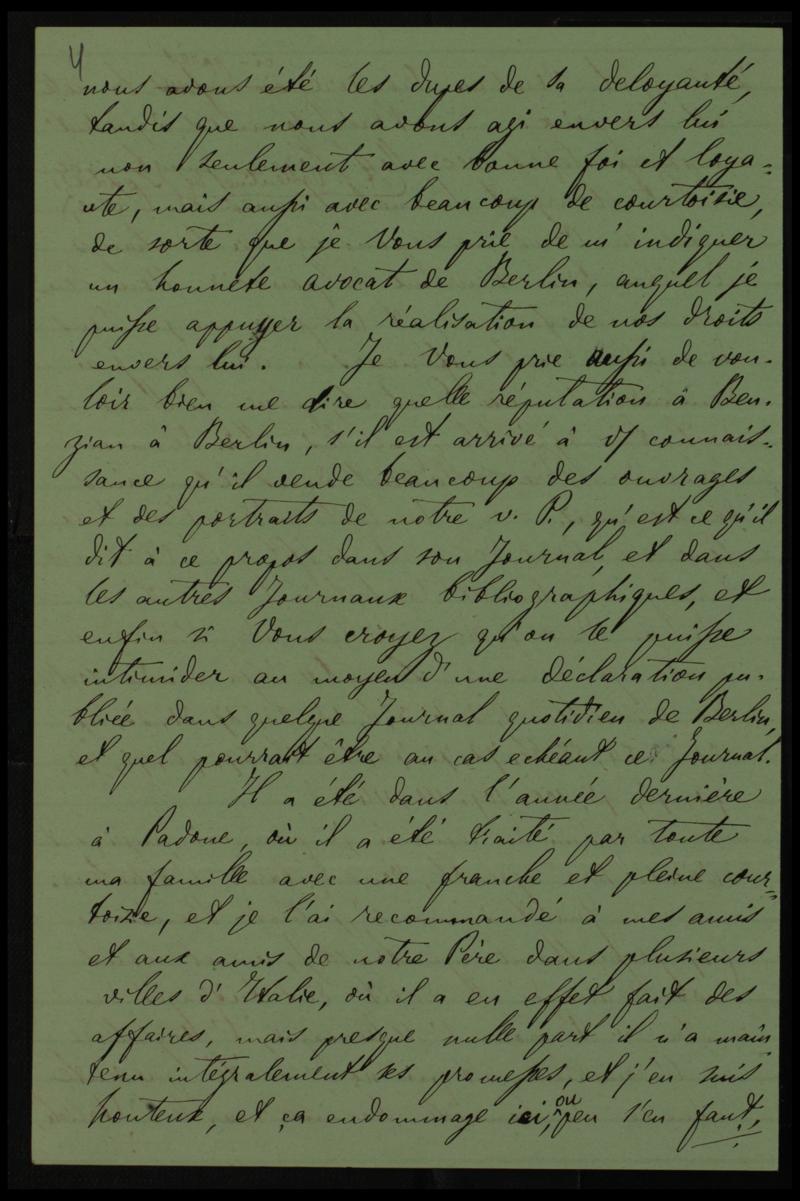 4
nous avons été les dupes de sa deloyauté,
tandis que nous avons agi envers lui
non seulement avec bonne foi et loya-
ute, mais aussi avec beaucoup de courtoisie,
de sorte que je Vous prie de m'indiquer
un honnete avocat de Berlin, auquel je
puisse appuyer la réalisation de nos droits
envers lui. Je Vous prie aussi de vou-
loir bien me dire quelle réputation a Ben-
zian à Berlin, s'il est arrivé à V/ connais-
sance qu'il vende beaucoup des ouvrages
et des portraits de notre v. P., qu'est ce qu'il
dit à ce propos dans son Journal, et dans
les autres Journaux bibliographiques, et
enfin si Vous croyez qu'on le puisse
intimider au moyen d'une déclaration pu-
bliée dans quelque Journal quotidien de Berlin,
et quel pourrait être au cas echéant ce Journal.
Il a été dans l'année dernière
à Padoue, où il a été traité par toute
ma famille avec une franche et pleine cour-
toizie, et je l'ai recommandé à mes amis
et aux amis de notre Père dans plusieurs
villes d'Italie, où il a en effet fait des
affaires, mais presque nulle part il n'a main
tenu intégralement ses promesses, et j'en suis
honteux, et ça endommage ici, ou peu s'en faut,